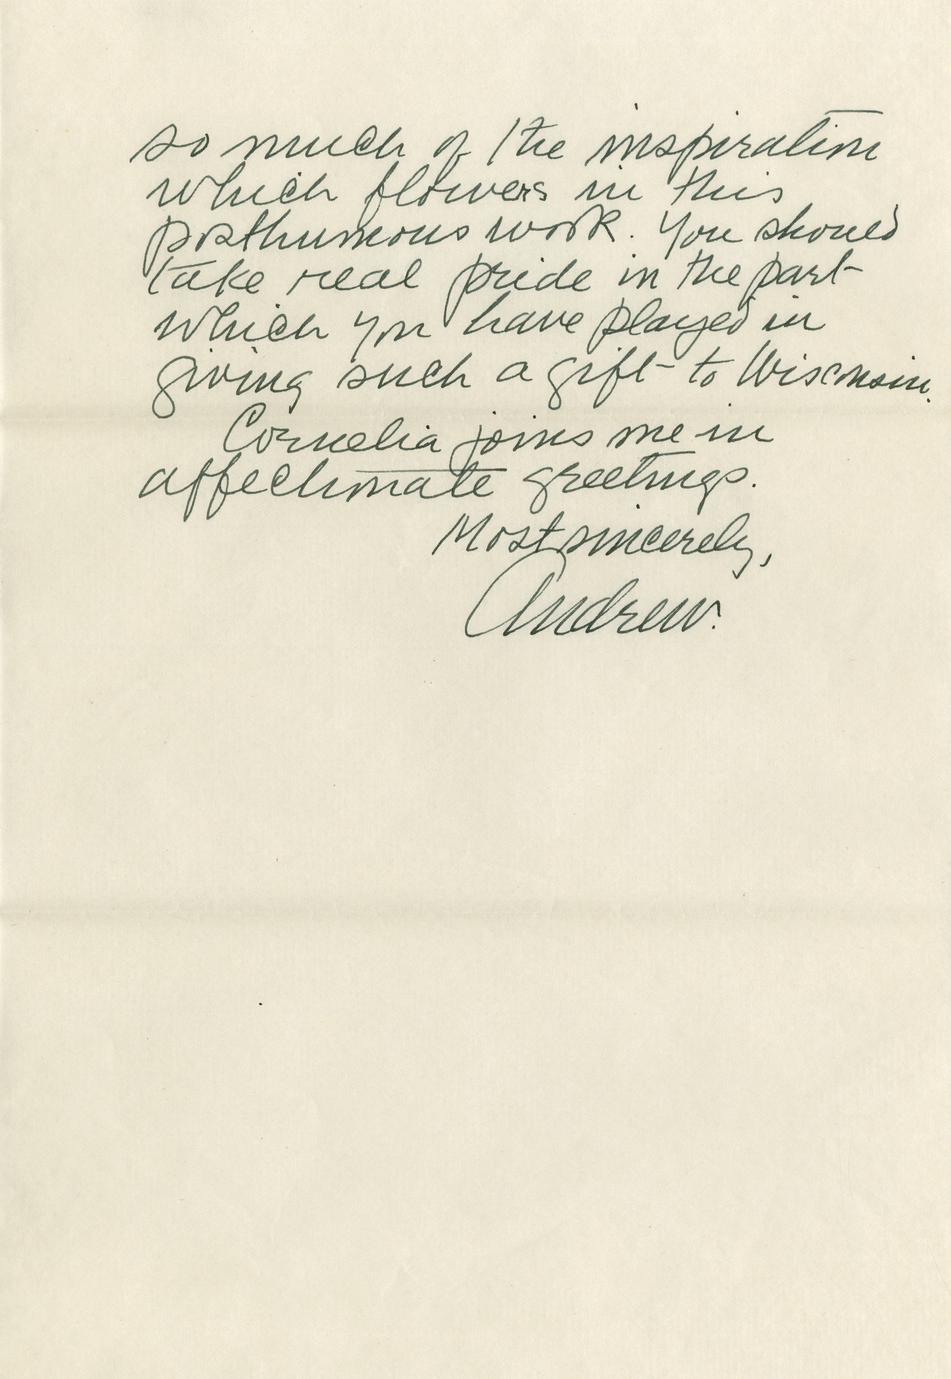 so much of the inspiration
which flowers in this
posthumous work. You should
take real pride in the part
which you have played in
giving such a gift to Wisconsin.
Cornelia joins me in
affectionate greetings.
Most sincerely,
Andrew.